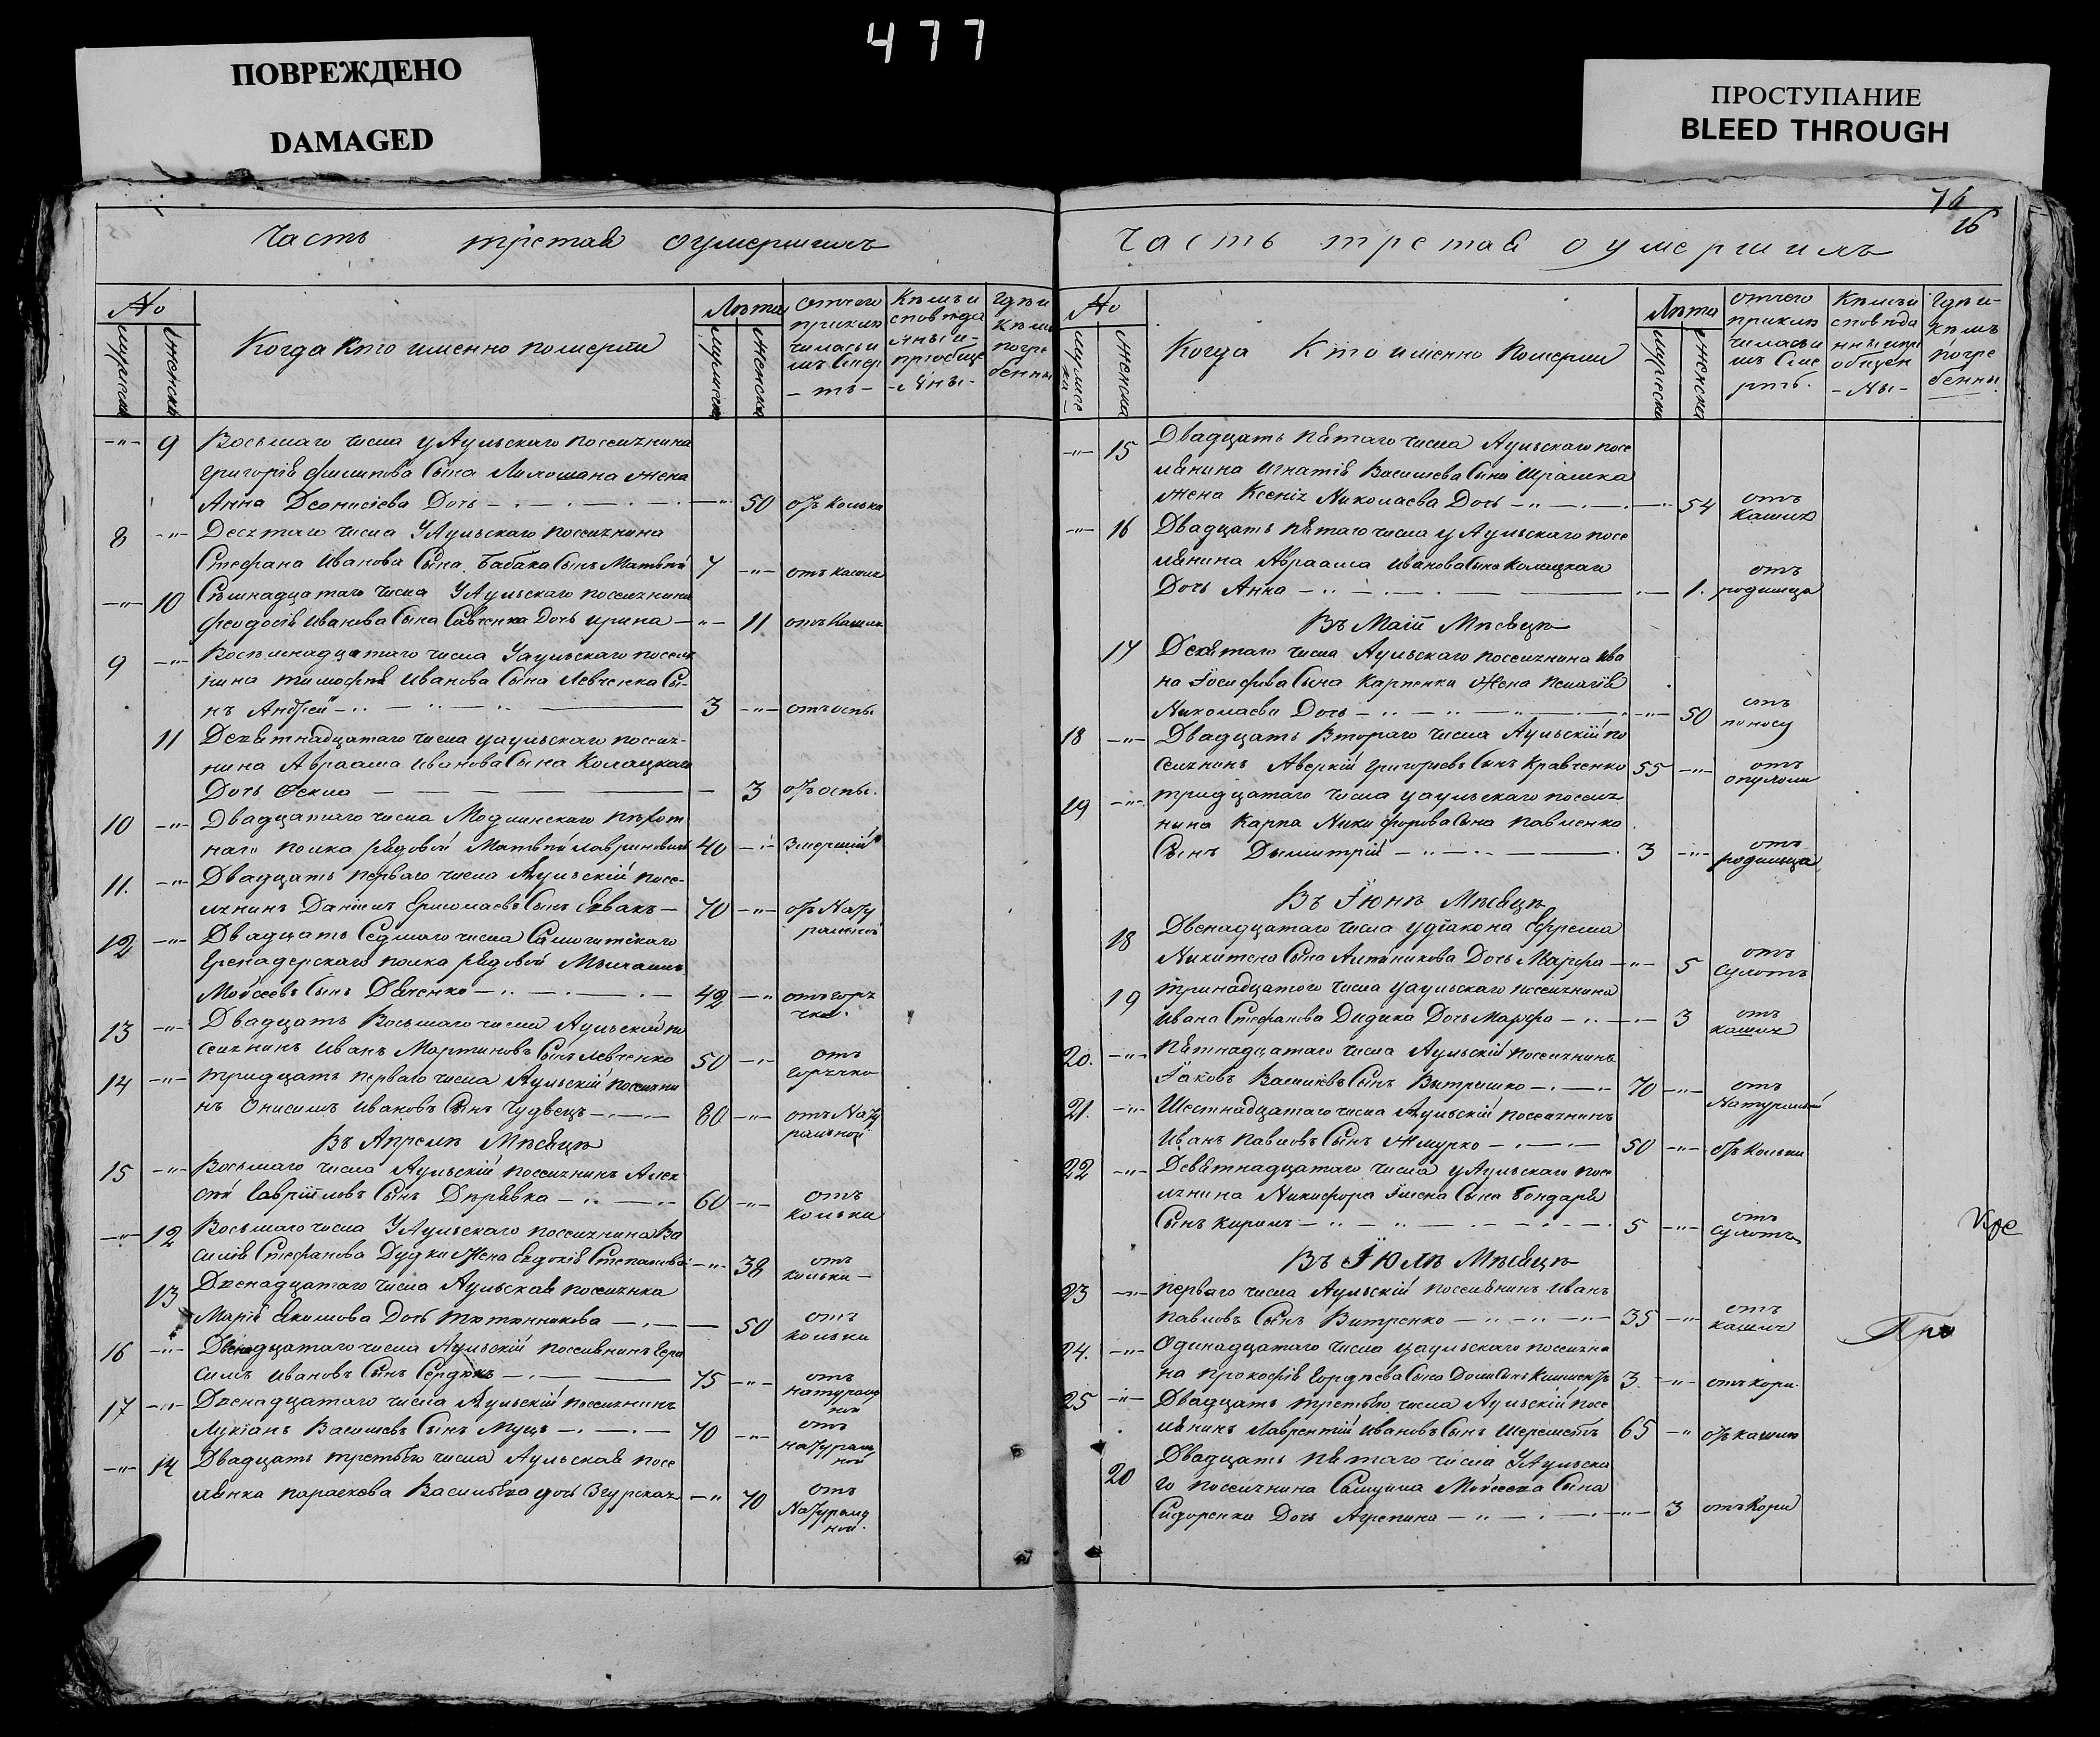 477
ПОВРЕЖДЕНО
DAMAGED
ПРОСТУПАНИЕ
BLEED THROUGH
Часть третая оумершихъ
№
мужеска
женска
Когда кто именно померли
Лѣта
мужеска
женска
отчего
приклю
чилась и
мъ смер
-ть-
Кѣмъ и
сповѣда
ны и
приобще
-ны-
Гдѣ и
Кѣмъ
погре
бенны
-"- 9 Восьмаго числа уАульскаго поселянина
Григорія Филипова Сына жена
Анна Деонисіева Дочь - 50 отъ колька
8 -"- Десятаго числа УАульскаго поселянина
Стефана Иванова Сына Бабака Сынъ Матвѣй 7 -"- отъ кашля
-"- 10 числа УАульскаго поселянина
Феодосія Иванова Сына Савченка Дочь Ирина -"- 11 отъ Кашля
9 -"- Восемнадцатаго числа Уаульскаго поселя
нина тимофѣя Иванова Сына Левченка Сы-
нъ Андрей - 3 -"- отъ оспы
11 Девятнадцатаго числа уаульскаго поселя-
нина Авраама Иванова Сына Колацкаго
Дочь Фекла - 3 отъ оспы.
10 -"- Двадцатаго числа Модлинскаго пѣхот
наго полка рядовой Матвѣй 40 -"-
11. -"- Двадцать перваго числа Аульскій посе-
лянинъ Даніилъ Сынъ - 70 -"- отъ Нату
ральной
12 -"- Двадцать Седмаго числа Самогитскаго
Гренадерскаго полка рядовой
Мойсеевъ Сынъ Дяченко - 42 -"- отъ горя
чки.
13 -"- Двадцать Восьмаго числа Аульскій по
селянинъ Иванъ Мартиновъ Сынъ Левченко 50 -"- отъ
горячко
14 -"- тридцать перваго числа Аульскій поселяни
нъ Онисимъ Ивановъ Сынъ Чудвецъ - 80 -"- отъ Нату
ральной
Въ Апрелѣ Мѣсяцѣ
15 -"- Восьмаго числа Аульскій поселянинъ Алек
сѣй Гавріиловъ Сынъ Дѣрявка - 60 -"- отъ
Кольки
-"- 12 Восьмаго числа УАульскаго поселянина Ва
силія Стефанова Дудки жена Евдокія Степанова -"- 38 отъ
кольки -
13 Двенадцатаго числа Аульская поселянка
Марія Якимова Дочь Тютюнникова - 50 отъ
кольки
16 -"- Двенадцатаго числа Аульскій поселянинъ Гера
симъ Ивановъ Сынъ Сердюкъ - 75 -"- отъ
натураль
ной
17 -"- Двенадцатаго числа Аульскій поселянинъ
Лукіанъ Васильевъ Сынъ Муцъ - 70 -"- отъ
натураль
ной
-"- 14 Двадцать третьего числа Аульская посе
лянка параскева Васильева дочь Згурская -"- 70 отъ
Натураль
ной.
76
16
Часть третая оумершихъ
№
мужес
ка-
женска
Когда Кто именно Померли
Лѣта
мужеска
женска
отчего
приклю
чилась и
мъ Сме
рть.
Кѣмъ и
сповѣда
нны и при
общен
-ны-
Гдѣ и-
Кѣмъ
погре
бенны.
-"- 15 Двадцать пятаго числа Аульскаго посе
лянина Игнатія Васильева Сына
жена Ксенія Николаева Дочь - 54 отъ
Кашля
-"- 16 Двадцать пятаго числа уАульскаго посе
лянина Авраама Иванова Сына Колацкаго
Дочь Анна - 1. отъ
родимца
Въ Маіи Мѣсяцѣ
17 Девятаго числа Аульскаго поселянина Ива
на Іосифова Сына Карпенка жена Пелагія
Николаева Дочь - 50 отъ
поносу
18 -"- Двадцать Втораго числа Аульскій по
селянинъ Аверкій Григорьевъ Сынъ Кравченко 55 -"- отъ
опухоли
19 -"- тридцатаго числа уаульскаго поселя
нина Карпа Никифорова Сына Павленко
Сынъ Димитрій - 3 -"- отъ
родимца
Въ Іюнѣ Мѣсяцѣ
18 Двенадцатаго числа удіакона Ефрема
Никитена Сына Дочь Марфа -"- 5 отъ
Сухотъ
19 тринадцатаго числа уаульскаго поселянина
Ивана Стефанова Дидика Дочь Марфа - 3 отъ
кашля
20. -"- Пятнадцатаго числа Аульскій поселянинъ
Іаковъ Васильевъ Сынъ - 70 -"- отъ
Натуральной
21. -"- Шестнадцатаго числа Аульскій поселянинъ
Иванъ Павловъ Сынъ Жмурко - 50 -"- отъ Кольки
22 -"- Девятнадцатаго числа уАульскаго посе
лянина Никифора Сына Бондаря
Сынъ Кирилъ - 5 -"- отъ
Сухотъ
Въ Іюлѣ Мѣсяцѣ
23 -"- перваго числа Аульскій поселянинъ Иванъ
Павловъ Сынъ Витренко - 35 -"- отъ
кашля
24. -"- Одинадцатаго числа уаульскаго поселяни
на Прокофія Гордѣева Сына 3 -"- отъ кори.
25 -"- Двадцать третьего числа Аульскій посе
лянинъ Лаврентій Ивановъ Сынъ Шереметъ 65 -"- отъ кашлю
20 Двадцать пятаго числа УАульска
го поселянина Самуила Мойсеева Сына
Сидоренка Дочь Агрепина -"- 3 отъ Кори